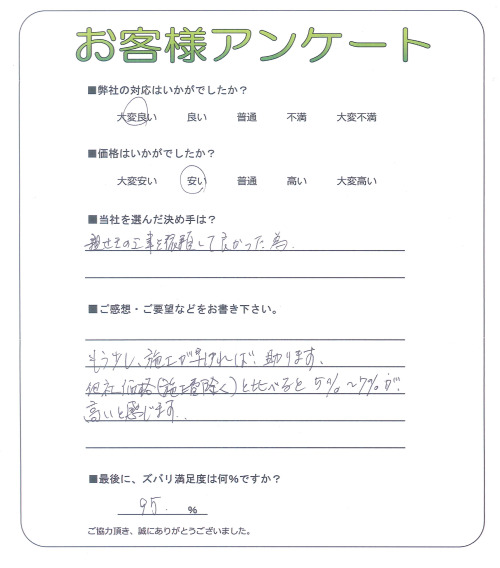 お客様アンケート
■弊社の対応はいかがでしたか？
大変良い 良い 普通 不満 大変不満
■価格はいかがでしたか？
大変安い 安い 普通 高い 大変高い
■当社を選んだ決め手は？
の工事を依頼して良かった為.
■ご感想・ご要望などをお書き下さい。
もう少し、施工が早ければ、助ります、
他社価格(施工費除く)と比べると5%～7%が、
高いと感じます、
■最後に、ズバリ満足度は何%ですか？
95. %
ご協力頂き、誠にありがとうございました。